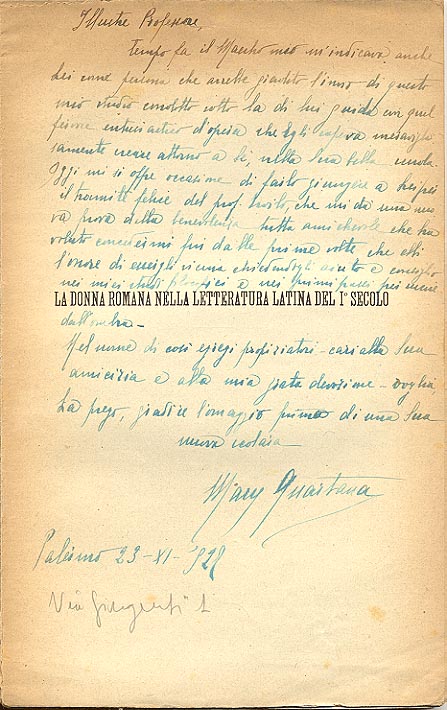 Illustre Professore,
tempo fa il Maestro mio m'indicava anche
Lei come persona che avrebbe gradito l'invio di questo
mio studio condotto sotto la di lui guida con quel
fervore entusiastico d'opera che Egli sapeva meravigli
samente creare attorno a Sè, nella Sua bella scuola
Oggi mi si offre occasione di farlo giungere a
il tramite felice del prof. che mi dà una nuo
va prova della benevolenza tutta amichevole che ha
voluto concedermi fin dalle prime volte che ebbi
l'onore di chiedendogli aiuto e consiglio
nei miei studi filologici e nei primi passi per uscire
LA DONNA ROMANA NELLA LETTERATURA LATINA DEL I° SECOLO
dall'ombra -
Nel nome di così egregi propiziatori - cari alla Sua
amicizia e alla mia grata devozione - voglia
La prego, gradire l'omaggio primo di una Sua
nuova scolara
Mary Quartana
Palermo 23-XI-'928
Via Girgenti 1